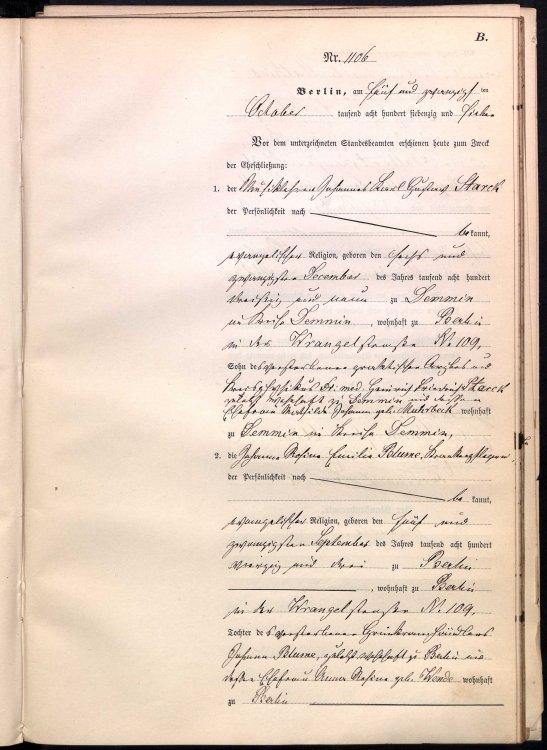 B.
Nr. 1106
Berlin, am fünf und zwanzigsten
October tausend acht hundert siebenzig und sieben
Vor dem unterzeichneten Standesbeamten erschienen heute zum Zweck
der Eheschließung:
1. der Musiklehrer Johannes Karl Gustav Starck
der Persönlichkeit nach
bekannt,
evangelischer Religion, geboren den sechs und
zwanzigsten December des Jahres tausend acht hundert
dreißig und neun zu Demmin
im Kreise Demmin, wohnhaft zu Berlin
in der Wrangelstraße N. 109,
Sohn des verstorbenen praktischen Arztes und
Kreisphysikus Dr. med. Heinrich Friedrich Starck
zuletzt wohnhaft zu Demmin und dessen
Ehefrau Mathilde Johanna geb. Muhrbeck wohnhaft
zu Demmin im Kreise Demmin,
2. die Johanna Rosine Emilie Blume, Krankenpflegerin,
der Persönlichkeit nach
bekannt,
evangelischer Religion, geboren den fünf und
zwanzigsten September des Jahres tausend acht hundert
vierzig und drei zu Berlin
, wohnhaft zu Berlin
in der Wrangelstraße N. 109,
Tochter des verstorbenen Grünkramhändlers
Johann Blume, zuletzt wohnhaft zu Berlin und
dessen Ehefrau Anna Rosine geb. Wende wohnhaft
zu Berlin